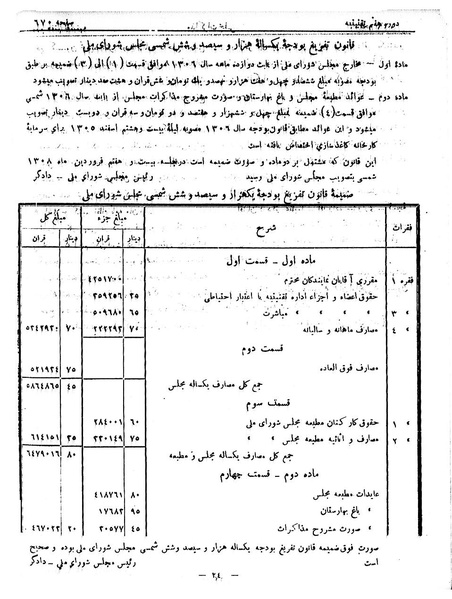 دوره هفتم تقنینیه
صفحه ۶۷۰
قانون تفریغ بودجه یکساله هزار و سیصد و شش شمسی مجلس شورای ملی
ماده اول - مخارج مجلس شورای ملی از بابت دوازده ماهه سال ۱۳۰۶ موافق قسمت (۱) الی (۳) ضمیمه بر طبق
بودجه مصوبه بمبلغ ششصد و چهل و هفت هزار و نهصد و یک تومان و شش قران و هشتاد دینار تصویب میشود
ماده دوم - عوائد مطبعه مجلس و باغ بهارستان و صورت مشروح مذاکرات مجلس از بابت سال ۱۳۰۶ شمسی
موافق قسمت (٤) ضمیمه بمبلغ چهل و شش هزار و هفتصد و دو تومان و سه قران و دویست دینار تصویب
میشود و این عوائد مطابق قانون بودجه سال ۱۳۰۶ مصوبه لیله بیست و هشتم اسفند ۱۳۰۵ برای سرمایه
کارخانه کاغذ سازی اختصاص یافته است
این قانون که مشتمل بر دو ماده و صورت ضمیمه است در جلسه بیست و هفتم فروردین ماه ۱۳۰۸
شمسی بتصویب مجلس شورای ملی رسید رئیس مجلس شورای ملی - دادگر
ضمیمه قانون تفریغ بودجه یکهزار و سیصد و شش شمسی مجلس شورای ملی
فقرات شرح مبلغ جزء مبلغ کل
دینار قران دینار قران
ماده اول - قسمت اول
فقره ۱ مقرری آقایان نمایندگان محترم
حقوق اعضاء و اجزاء اداره تقنینیه با اعتبار احتیاطی ۲۵
» ۳ » » » مباشرت ۶۵ ۵۰۹۶۸۰
» ٤ مصارف ماهانه و سالیانه ۷۰ ۷۰
قسمت دوم
مصارف فوق العاده ۷۵ ۵۲۱۹۳٤
جمع کل مصارف یکساله مجلس ٤۵ ۵۸٦٤۸٦۵
قسمت سوم
» ۱ حقوق کارکنان مطبعه مجلس شورای ملی ٦۰ ۳۸٤۰۰۱
» ۲ مصارف و اثاثیه مطبعه مجلس » » ۷۵ ۲۳۰۱٤۹ ۳۵ ٦۱٤۱۵۱
جمع کل مصارف یکساله مجلس و مطبعه ۸۰ ٦٤۷۹۰۱٦
ماده دوم - قسمت چهارم
عایدات مطبعه مجلس ۸۰ ٤۲۸۷٦۱
» باغ بهارستان ۹۵ ۱۷٦۸۳
» صورت مشروح مذاکرات ٤۵ ۲۰۵۷۷ ۲۰ ٤٦۷۰۲۳
صورت فوق ضمیمه قانون تفریغ بودجه یکساله هزار و سیصد و شش شمسی مجلس شورای ملی بوده و صحیح
است رئیس مجلس شورای ملی - دادگر